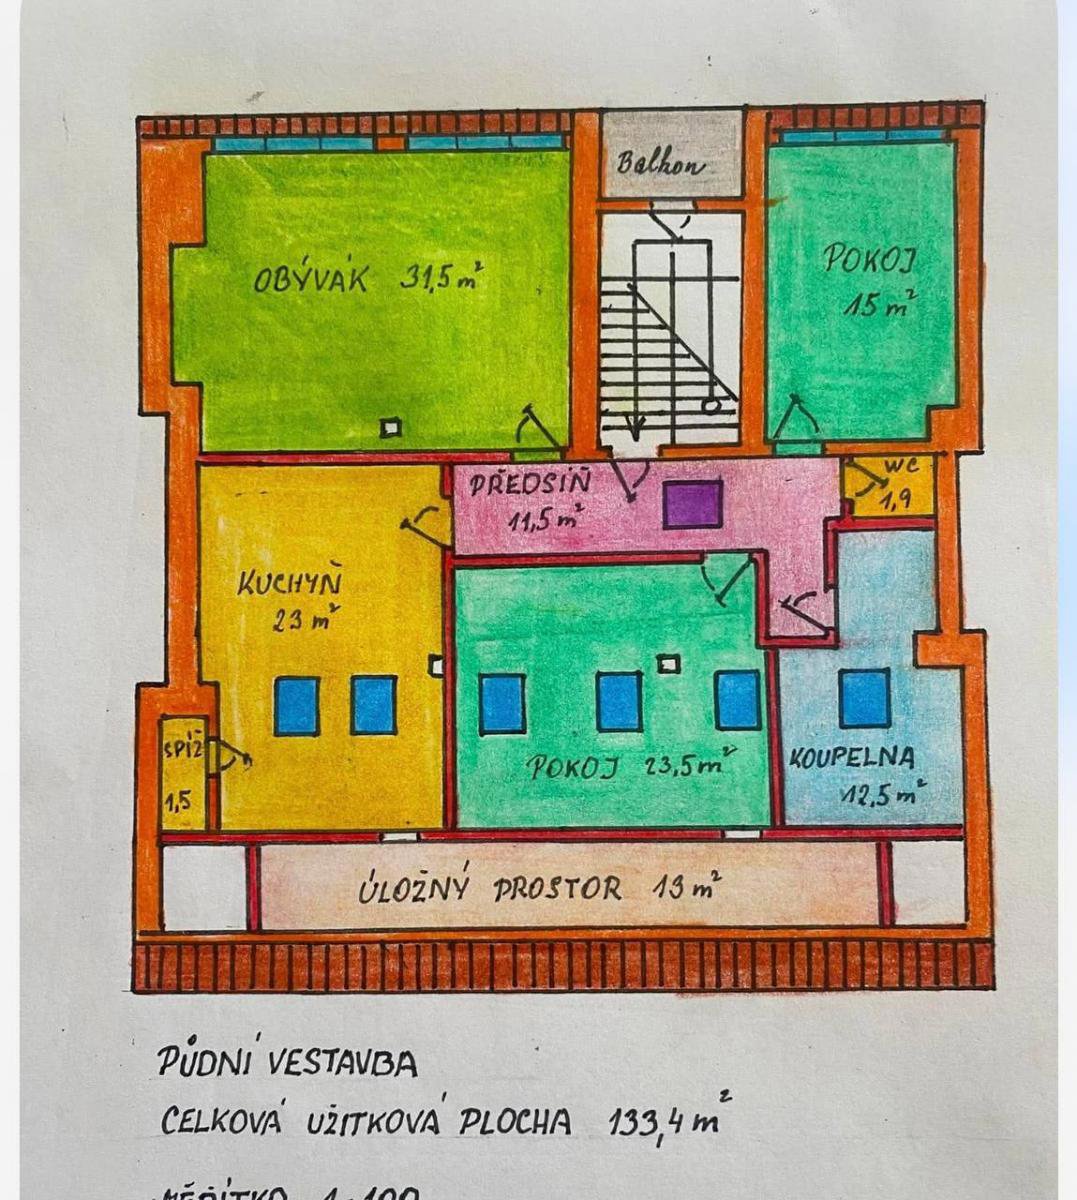 Balkon
OBÝVÁK 31,5 m²
POKOJ
15 m²
PŘEDSÍŇ
11,5 m²
WC
1,9
KUCHYŇ
23 m²
SPÍŽ
1,5
POKOJ 23,5 m²
KOUPELNA
12,5 m²
ÚLOŽNÝ PROSTOR 13 m²
PŮDNÍ VESTAVBA
CELKOVÁ UŽITKOVÁ PLOCHA 133,4 m²
MĚŘÍTKO 1:100